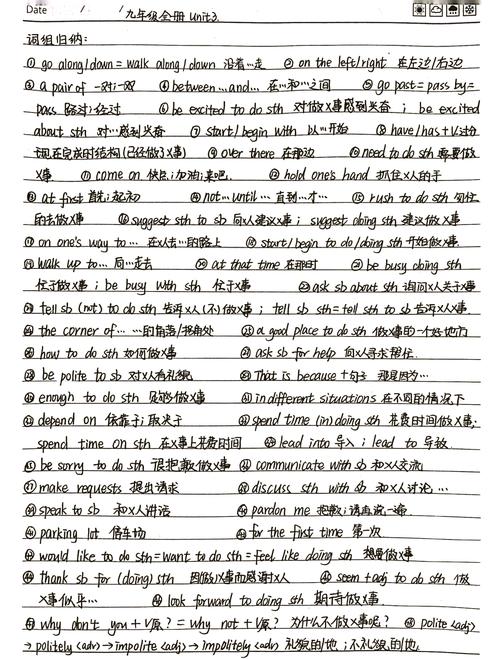 Date / /
九年级全册 Unit3.
词组归纳:
① go along/down = walk along/down 沿着…走 ② on the left/right 在左边/右边
③ a pair of 一对;一双 ④ between…and… 在…和…之间 ⑤ go past = pass by =
pass 路过;经过 ⑥ be excited to do sth 对做×事感到兴奋 ; be excited
about sth 对…感到兴奋 ⑦ start/begin with 以…开始 ⑧ have/has + V过分
现在完成时结构(已经做了×事) ⑨ over there 在那边 ⑩ need to do sth 需要做
×事 ⑪ come on 快点;加油;来吧. ⑫ hold one's hand 抓住×人的手
⑬ at first 首先;起初 ⑭ not…until… 直到…才… ⑮ rush to do sth 匆忙
的去做×事 ⑯ suggest sth to sb 向×人建议×事 ; suggest doing sth 建议做×事
⑰ on one's way to… 在×人去…的路上 ⑱ start/begin to do/doing sth 开始做×事
⑲ walk up to… 向…走去 ⑳ at that time 在那时 ㉑ be busy doing sth
忙于做×事 ; be busy with sth 忙于×事 ㉒ ask sb about sth 询问×人关于×事
㉓ tell sb (not) to do sth 告诉×人(不)做×事 ; tell sb sth = tell sth to sb 告诉×人×事.
㉔ the corner of… …的角落/拐角处 ㉕ a good place to do sth 做×事的一个好地方
㉖ how to do sth 如何做×事 ㉗ ask sb for help 向×人寻求帮忙.
㉘ be polite to sb 对×人有礼貌 ㉙ That is because + 句子 那是因为…
㉚ enough to do sth 足够做×事 ㉛ in different situations 在不同的情况下
㉜ depend on 依靠于;取决于 ㉝ spend time (in) doing sth 花费时间做×事;
spend time on sth 在×事上花费时间 ㉞ lead into 导入 ; lead to 导致.
㉟ be sorry to do sth 很抱歉做×事 ㊱ communicate with sb 和×人交流
㊲ make requests 提出请求 ㊳ discuss sth with sb 和×人讨论…
㊴ speak to sb 和×人讲话 ㊵ pardon me 抱歉;请再说一遍.
㊶ parking lot 停车场 ㊷ for the first time 第一次
㊸ would like to do sth = want to do sth = feel like doing sth 想要做×事
㊹ thank sb for (doing) sth 因做×事而感谢×人 ㊺ seem + adj to do sth 做
×事似乎… ㊻ look forward to doing sth 期待做×事.
㊼ why don't you + V原? = why not + V原? 为什么不做×事呢? ㊽ polite <adj>
→ politely <adv> → impolite <adj> → impolitely <adv> 礼貌的/地 ; 不礼貌的/地.